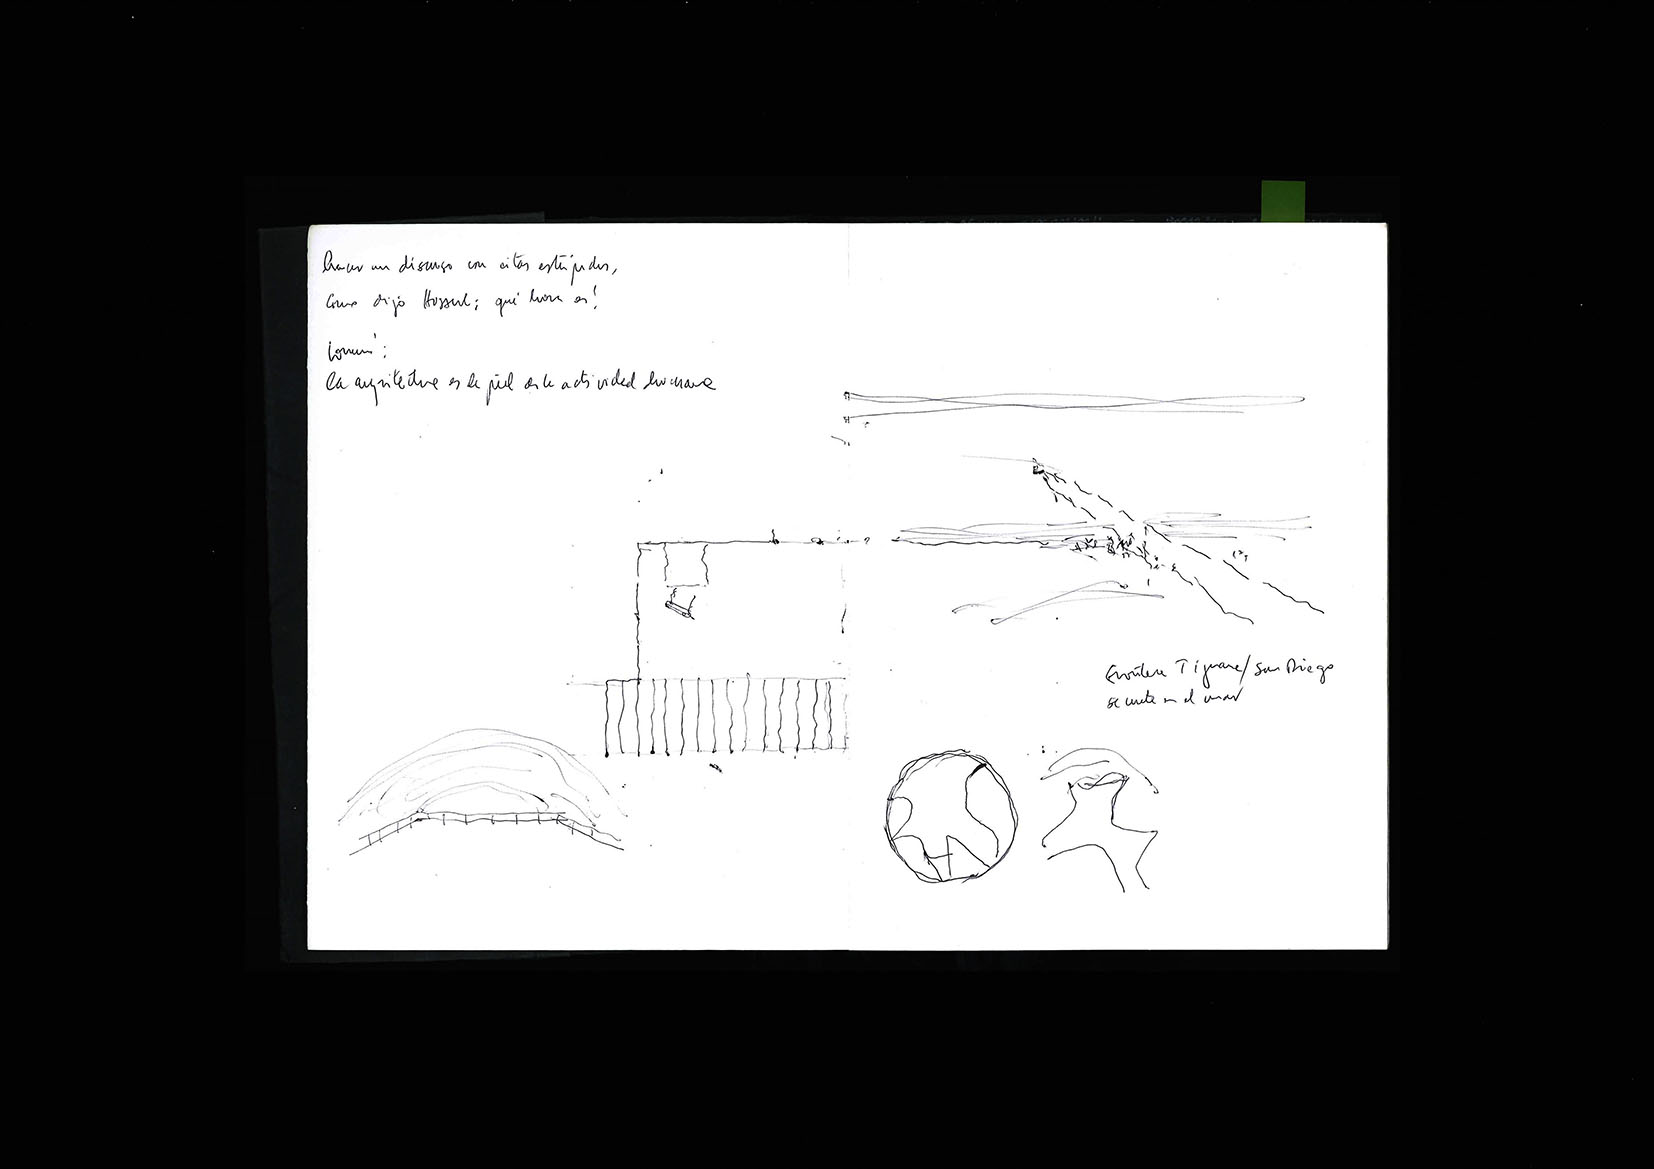 hacer un discurso con citas estúpidas,
como dijo Husserl; qué hora es!
la arquitectura es la piel de la actividad humana
frontera Tijuana/San Diego
se mete en el mar